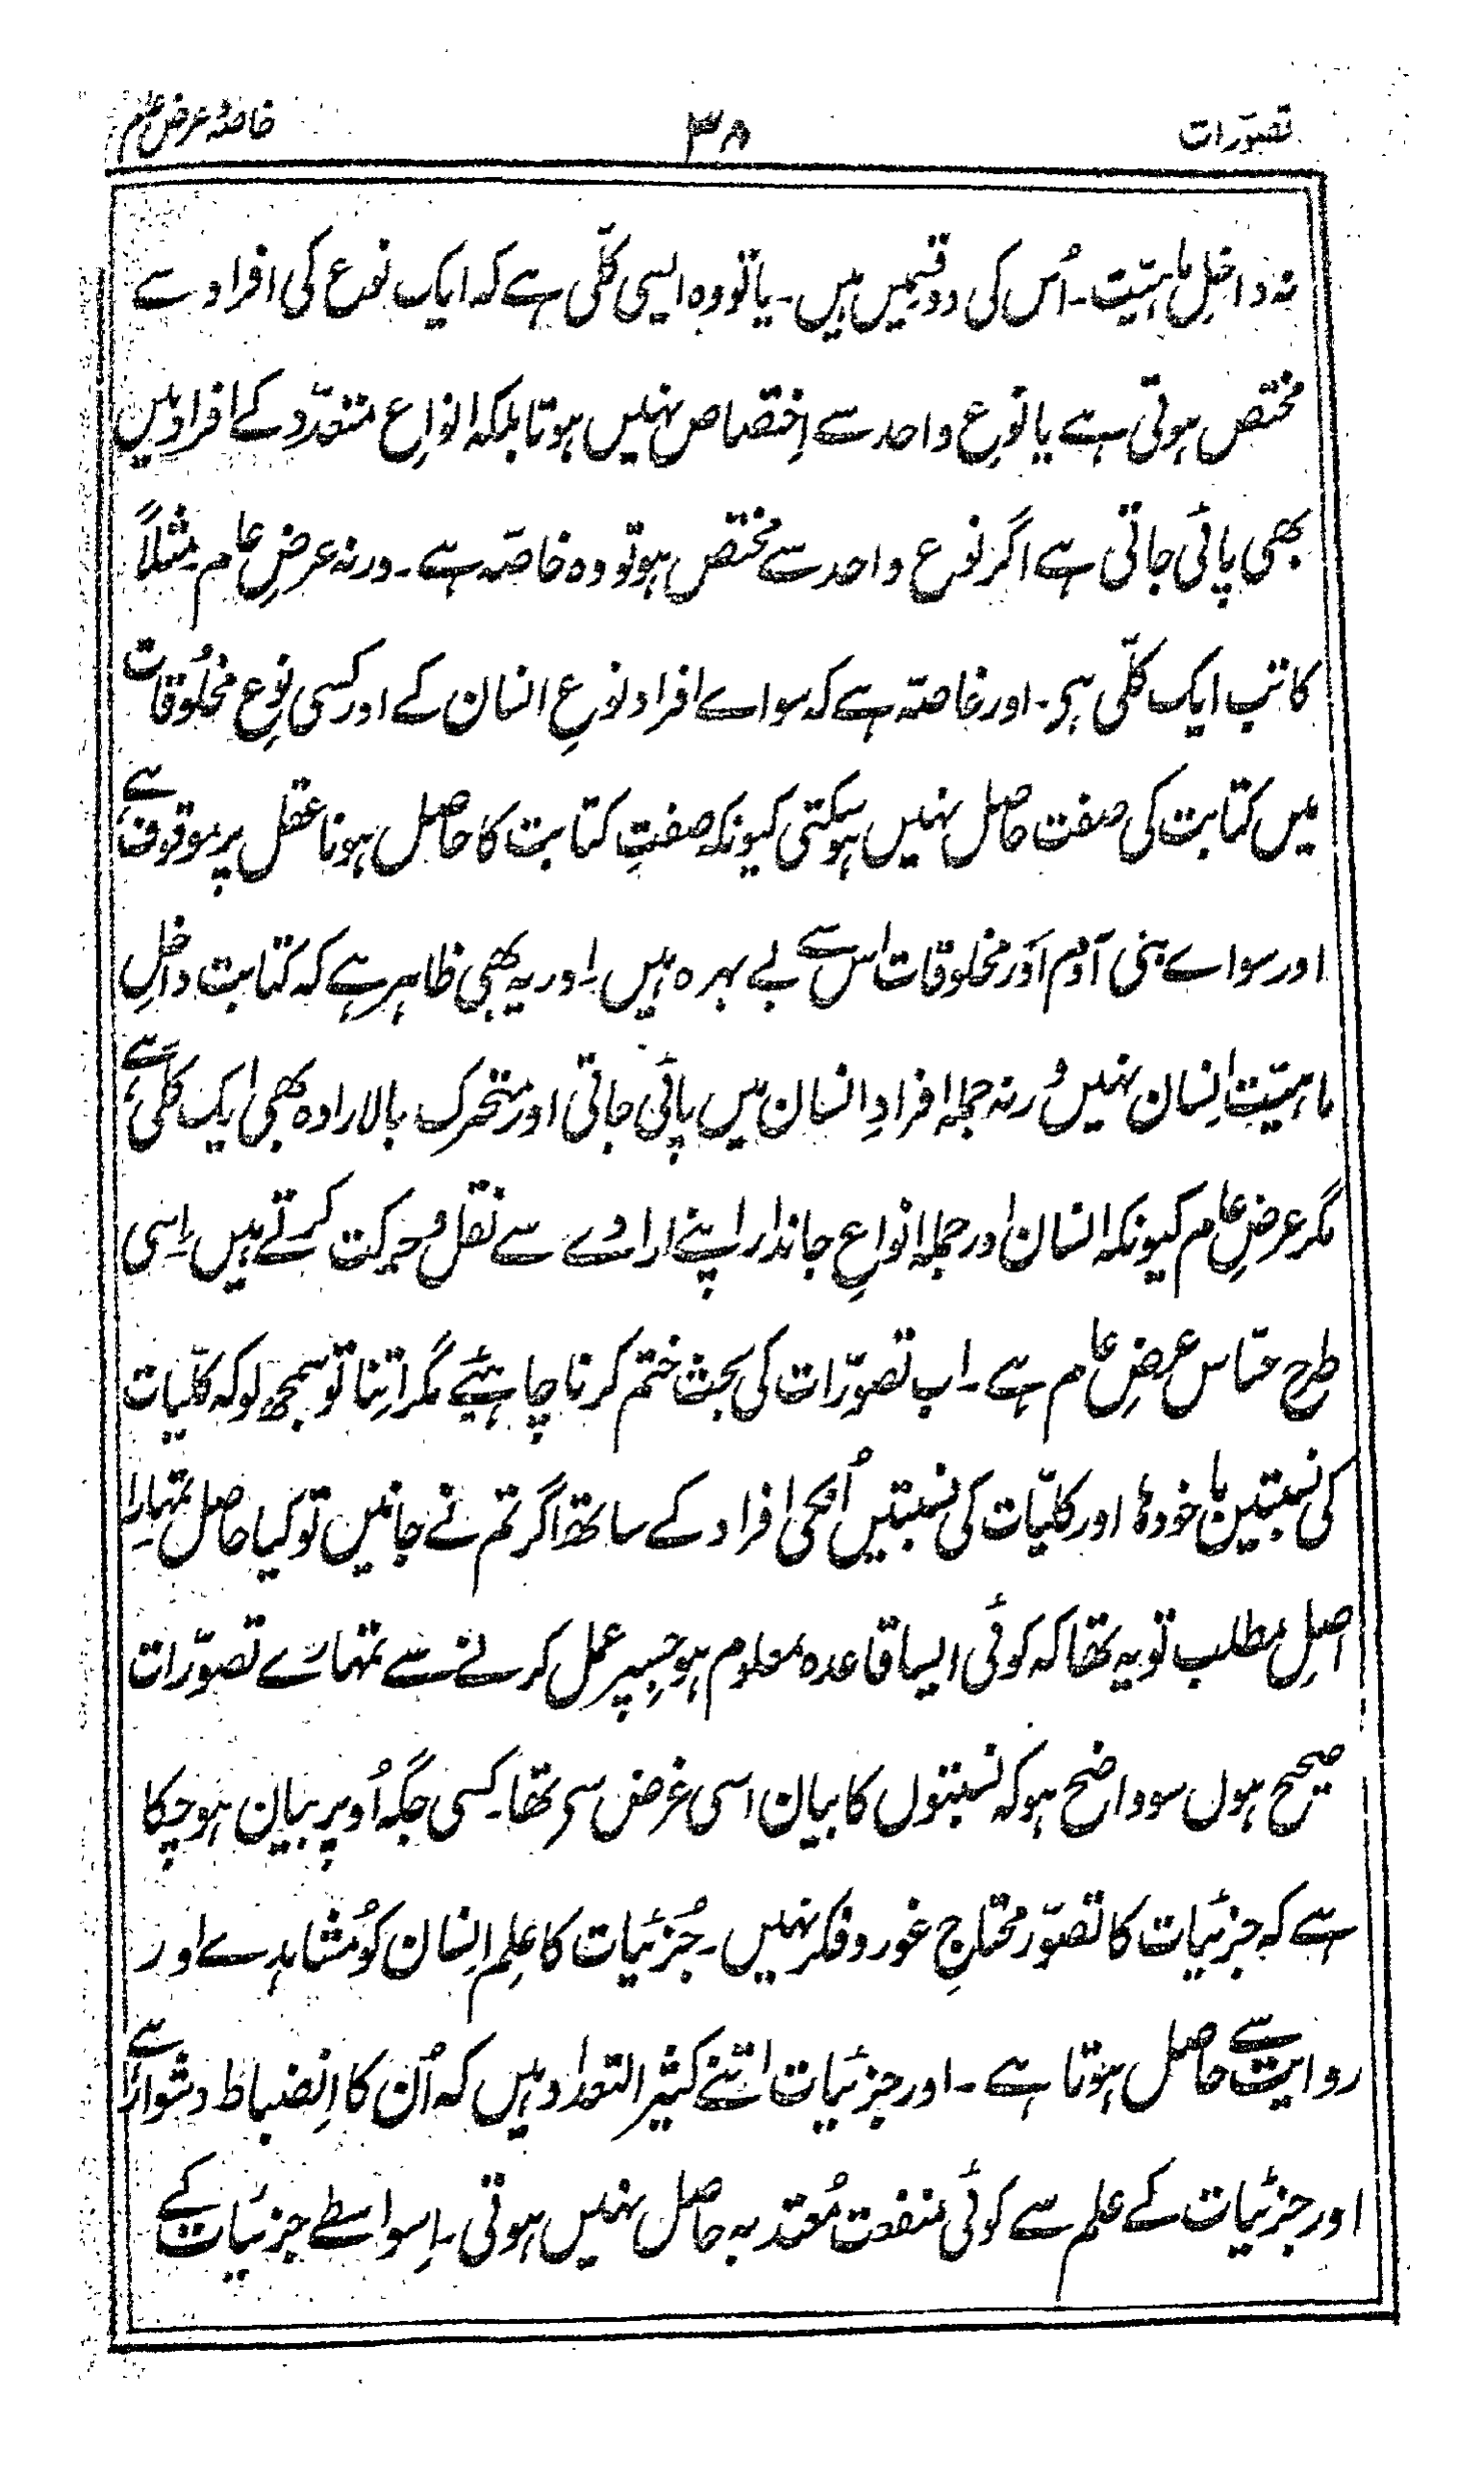 تصوّرات ۳۸ خاصہ و عرض عام
نہ داخلِ ماہیّت۔ اُس کی دو قسمیں ہیں۔ یا تو وہ ایسی کلّی ہے کہ ایک نوع کی افراد سے
مختص ہوتی ہے یا نوعِ واحد سے اِختصاص نہیں ہوتا بلکہ انواعِ متعدّد کے افراد میں
بھی پائی جاتی ہے اگر نوع واحد سے مختص ہو تو وہ خاصّہ ہے۔ ورنہ عرضِ عام۔ مثلاً
کاتب ایک کلّی ہی۔ اور خاصّہ ہے کہ سواے افراد نوعِ انسان کے اور کسی نوعِ مخلُوقات
میں کتابت کی صفت حاصل نہیں ہو سکتی کیونکہ صفتِ کتابت کا حاصل ہونا عقل پر موقوف ہے
اور سواے بنی آدم اَوْر مخلوقات اس سے بے بہرہ ہیں۔ اور یہ بھی ظاہر ہے کہ کتابت داخلِ
ماہیّت اِنسان نہیں وُرنہ جملہ افرادِ انسان میں پائی جاتی اور متحرک بالارادہ بھی ایک کلّی ہے
مگر عرضِ عام کیونکہ انسان اور جملہ انواعِ جاندار اپنے ارادے سے نقل و حرکت کرتے ہیں۔ اِسی
طرح حسّاس عرضِ عام ہے۔ اب تصوّرات کی بحث ختم کرنا چاہئیے مگر اتِنا تو سمجھ لو کہ کلّیات
کی نسبتیں با خودہا اور کلیّات کی نسبتیں اُنکی افراد کے ساتھ اگر تم نے جانیں تو کیا حاصل تمہارا
اصلِ مطلب تو یہ تھا کہ کوئی ایسا قاعدہ معلوم ہو جِسپر عمل کرنے سے تمھارے تصوّرات
صحیح ہوں سو واضح ہو کہ نسبتوں کا بیان اسی غرض سی تھا۔ کسی جگہ اُوپر بیان ہو چکا
ہے کہ جزئیات کا تصوّر محتاجِ غور و فکر نہیں۔ جُزئیات کا عِلم اِنسان کو مُشاہدے اور
روایت سے حاصل ہوتا ہے۔ اور جزئیات اتنے کثیر التعداد ہیں کہ اُن کا اِنضباط دشوار ہے
اور جزئیات کے علم سے کوئی منفعت مُعتد بہ حاصل نہیں ہوتی۔ اِسواسطے جزئیات کے